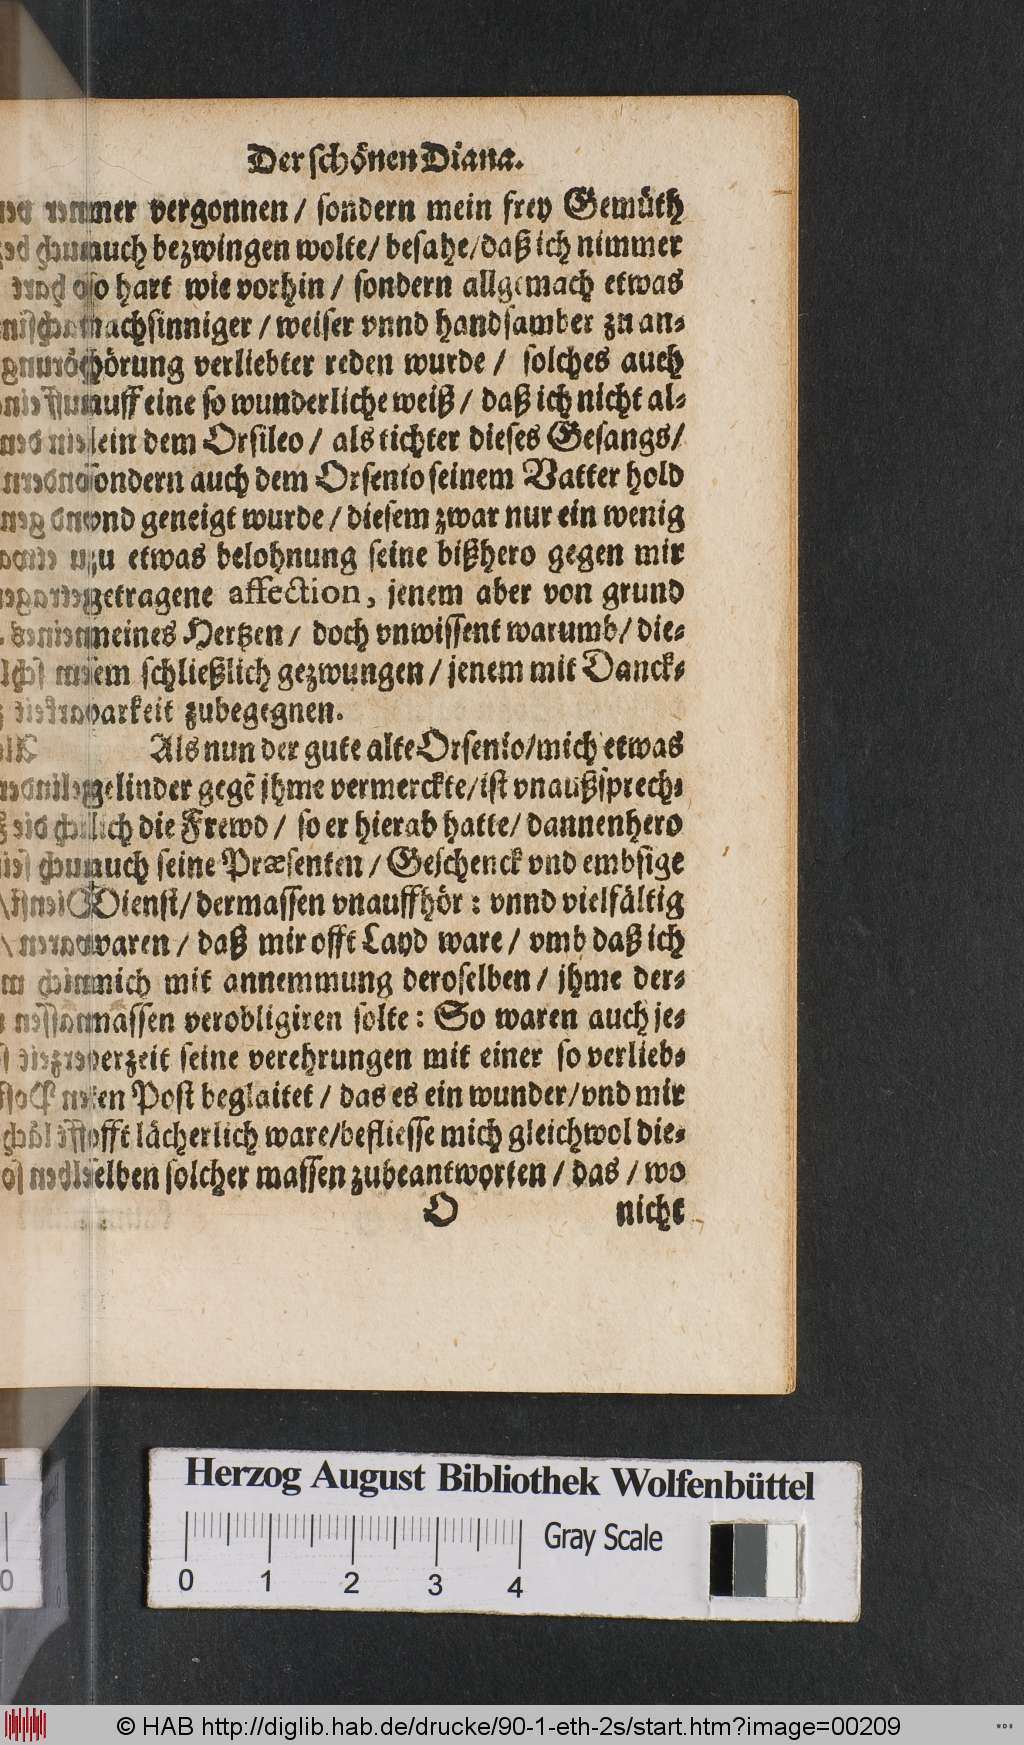 Der schönen Diana.
mer vergonnen / sondern mein frey Gemüth
auch bezwingen wolte / besahe / daß ich nimmer
so hart wie vorhin / sondern allgemach etwas
nachsinniger / weiser vnnd handsamber zu an-
hörung verliebter reden wurde / solches auch
auff eine so wunderliche weiß / daß ich nicht al-
lein dem Orsileo / als tichter dieses Gesangs /
sondern auch dem Orsenio seinem Vatter hold
vnd geneigt wurde / diesem zwar nur ein wenig
zu etwas belohnung seine bißhero gegen mir
getragene affection, jenem aber von grund
meines Hertzen / doch vnwissent warumb / die-
sem schließlich gezwungen / jenem mit Danck-
barkeit zubegegnen.
Als nun der gute alte Orsenio / mich etwas
gelinder gegẽ jhme vermerckte / ist vnaußsprech-
lich die Frewd / so er hierab hatte / dannenhero
auch seine Præsenten / Geschenck vnd embsige
Dienst / dermassen vnauffhör : vnnd vielfältig
waren / daß mir offt Layd ware / vmb daß ich
mich mit annemmung deroselben / jhme der-
massen verobligiren solte : So waren auch je-
derzeit seine verehrungen mit einer so verlieb-
ten Post beglaitet / das es ein wunder / vnd mir
offt lächerlich ware / befliesse mich gleichwol die-
selben solcher massen zubeantworten / das / wo
O nicht
Herzog August Bibliothek Wolfenbüttel
Gray Scale
0 1 2 3 4
© HAB http://diglib.hab.de/drucke/90-1-eth-2s/start.htm?image=00209